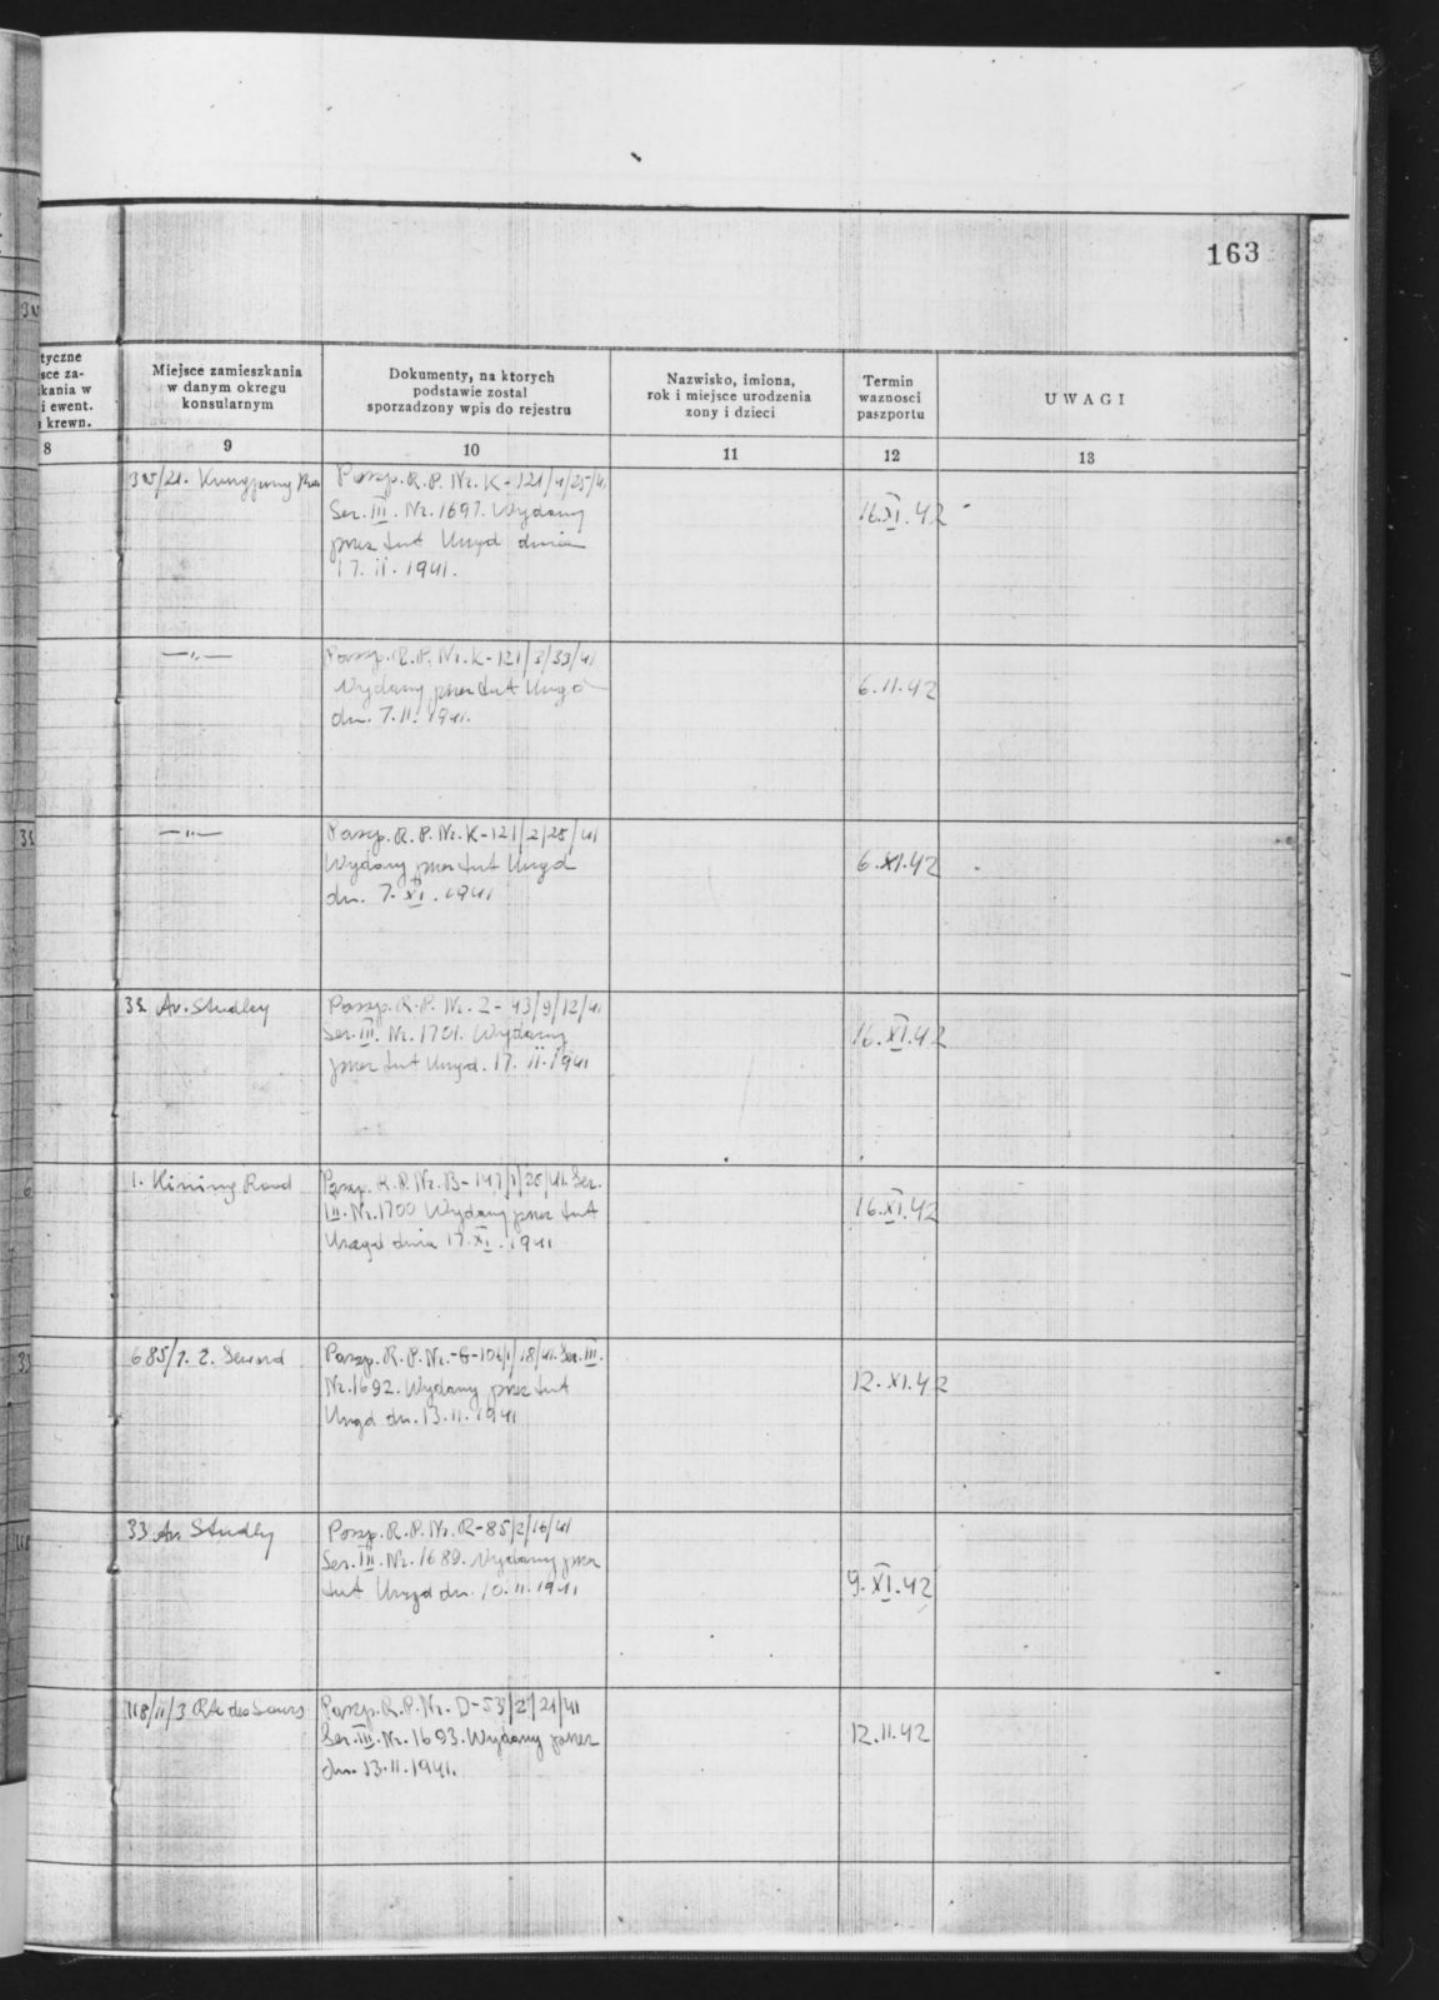 163
tyczne
sce za-
kania w
i ewent.
krewn.
Miejsce zamieszkania
w danym okregu
konsularnym
Dokumenty, na ktorych
podstawie zostal
sporzadzony wpis do rejestru
Nazwisko, imiona,
rok i miejsce urodzenia
zony i dzieci
Termin
waznosci
paszportu
UWAGI
8
9
10
11
12
13
Paszp. R.P. Nr. K-121/4/25/41
Ser. III. Nr. 1697. Wydany
przez tut Urząd dnia
17. II. 1941.
16.XI.42
—"—
Paszp. R.P. Nr. K-121/3/33/41
Wydany przez tut Urząd
dn. 7.11.1941.
6.11.42
—"—
Paszp. R.P. Nr. K-121/2/28/41
Wydany przez tut Urząd
dn. 7.XI.1941
6.XI.42
Av. Studley
Paszp. R.P. Nr. Z-43/9/12/41
Ser. III. Nr. 1701. Wydany
przez tut Urząd. 17. II. 1941
16.XI.42
1. Kining Road
Paszp. R.P. Nr. B-147/1/26/41. Ser.
III. Nr. 1700 Wydany przez tut
Urząd dnia 17.XI.1941
16.XI.42
685/7. 2. Seward
Paszp. R.P. Nr. Ser. III.
Nr. 1692. Wydany przez tut
Urząd dn. 13.11.1941
12.XI.42
33 Av. Studley
Paszp. R.P. Nr. R-85/2/16/41
Ser. III. Nr. 1689. Wydany przez
tut Urząd dn. 10.11.1941
9.XI.42
118/11/3 Rte des Soeurs
Paszp. R.P. Nr. D-53/2/21/41
Ser. III. Nr. 1693. Wydany przez
dn. 13.11.1941.
12.11.42